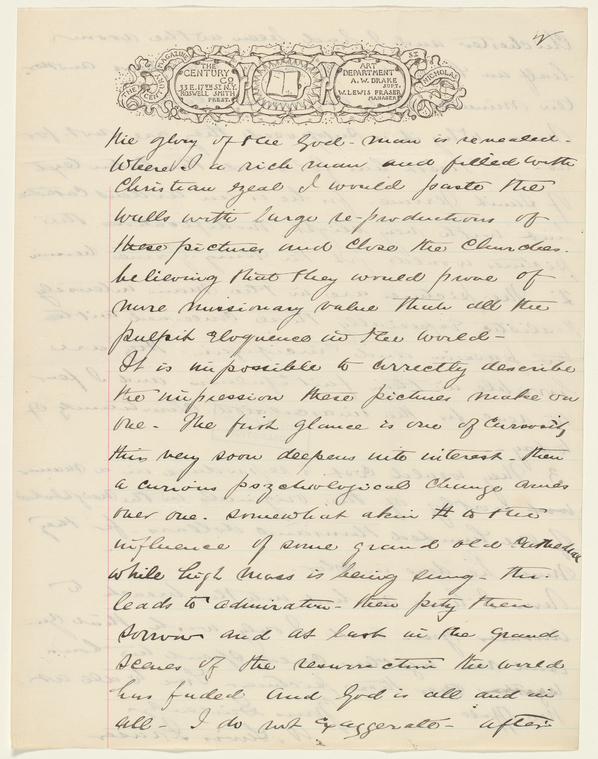 2
THE CENTURY MAGAZINE
THE CENTURY CO
33 E. 17TH ST. N.Y.
ROSWELL SMITH
PREST.
ART DEPARTMENT
A. W. DRAKE
SUPT.
W. LEWIS FRASER
MANAGER
ST NICHOLAS
the glory of the God-man is revealed.
Where I a rich man and filled with
Christian zeal I would paste the
walls with large re-productions of
these pictures and close the Churches.
believing that they would prove of
more missionary value than all the
pulpit eloquence in the world -
It is impossible to correctly describe
the impression these pictures make on
one - The first glance is one of curiosity,
this very soon deepens into interest - then
a curious psychological change comes
over one. somewhat akin to the
influence of some grand old Cathedral
while high mass is being sung - this
leads to admiration - then pity then
sorrow and at last in the grand
scenes of the resurrection the world
has faded and God is all and in
all - I do not exaggerate - after